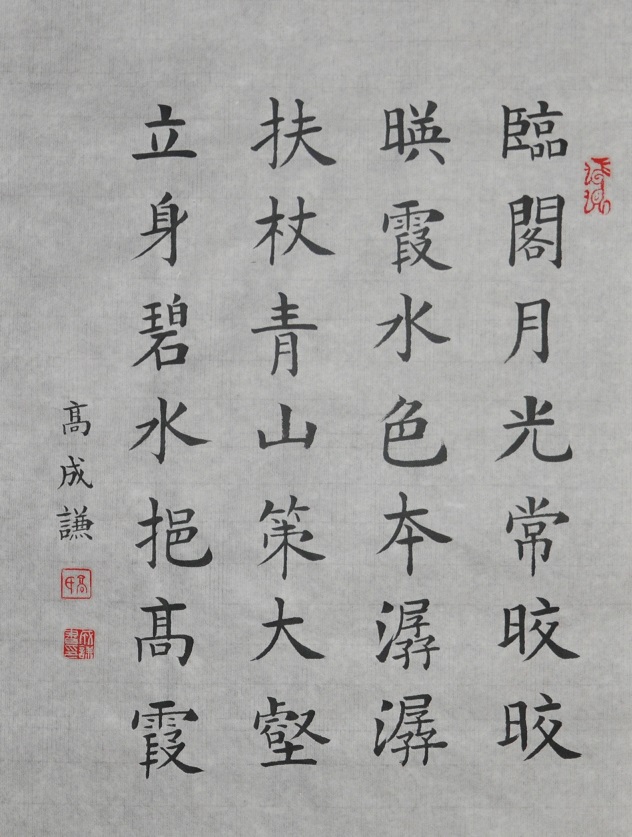 臨閣月光常晈晈
暎霞水色本潺潺
扶杖青山策大壑
立身碧水挹髙霞
髙成謙